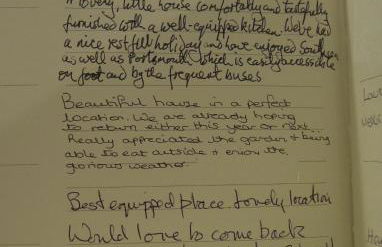 lovely, little house comfortably and tastefully
furnished with a well-equipped kitchen. We've had
a nice restfull holiday and have enjoyed Southsea
as well as Portsmouth, which is easily accessable
on foot and by the frequent buses
Beautiful house in a perfect
location. We are already hoping
to return either this year or next...
Really appreciated the garden & being
able to eat outside & enjoy the
glorious weather
Best equipped place. Lovely location
Would love to come back